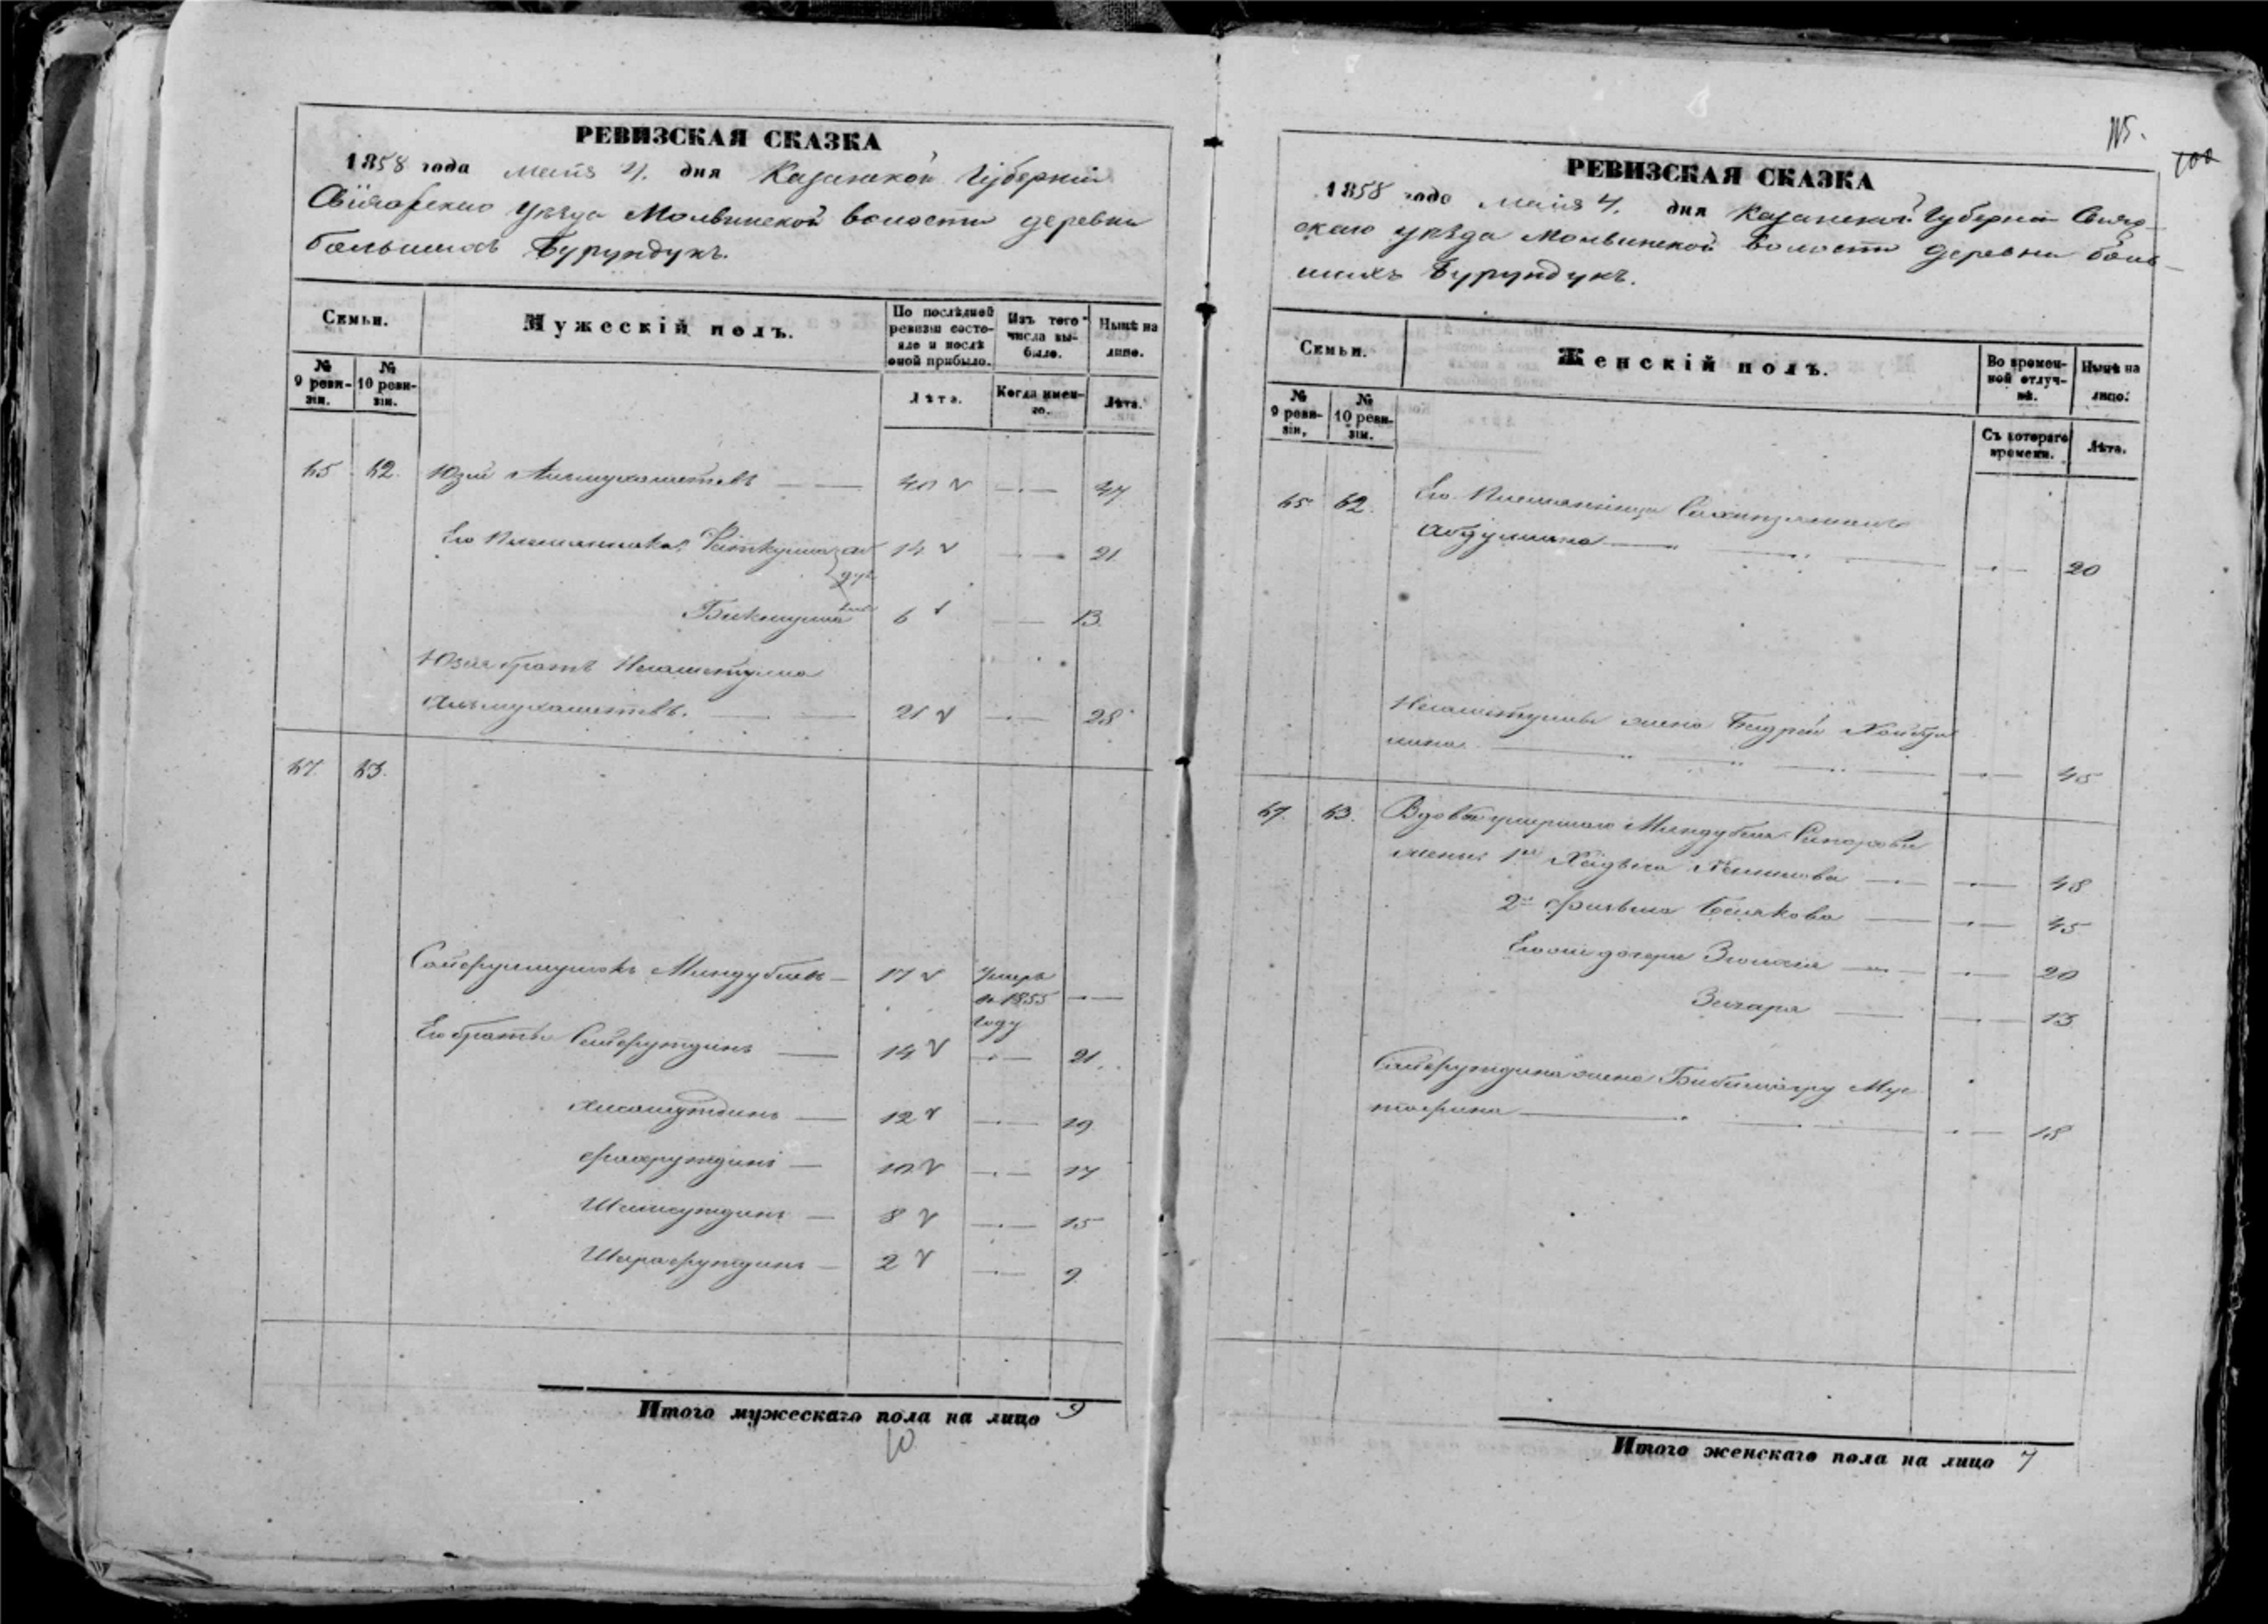 РЕВИЗСКАЯ СКАЗКА
1858 года мая 4. дня Казанской Губернии
Свіяжскаго уѣзда Молвинской волости деревни
большихъ Бурундукъ.
Семьи.
Мужескій полъ.
По послѣдней ревизіи состояло и послѣ оной прибыло.
Изъ того числа выбыло.
Нынѣ на лицо.
№ 9 ревизіи.
№ 10 ревизіи.
Лѣта.
Когда именно.
Лѣта.
65 62. Юзей Альмухаметевъ 40 47
Его племянники 14 21
Бикмулла 6 13.
Юзея братъ Нигаметулла
Альмухаметевъ. 21 28
67. 63.
Сайфулмулюкъ Миндубаевъ 17 Умеръ въ 1855 году
Его братья Сайфутдинъ 14 21.
Хисамутдинъ 12 19
Фахрутдинъ 10 17
Шамсутдинъ 8 15
Шарафутдинъ 2 9.
Итого мужескаго пола на лицо 9
10
115.
100
РЕВИЗСКАЯ СКАЗКА
1858 года мая 4. дня Казанской Губерніи Свіяж-
скаго уѣзда Молвинской волости деревни боль-
шихъ Бурундукъ.
Семьи.
Женскій полъ.
Во временной отлучкѣ.
Нынѣ на лицо.
№ 9 ревизіи.
№ 10 ревизіи.
Съ котораго времени.
Лѣта.
65 62. Его племянница
Абдулина 20
Нигаметуллы жена Бадрей Хайбул
лина 45
67. 63. Вдовы умершаго Миндубая
жены 1я Хадыча 48
2я Фазыла Биккова 45
Его дочери 20
Зигаря 13
Сайфутдина жена Мус
тафина 18
Итого женскаго пола на лицо 7